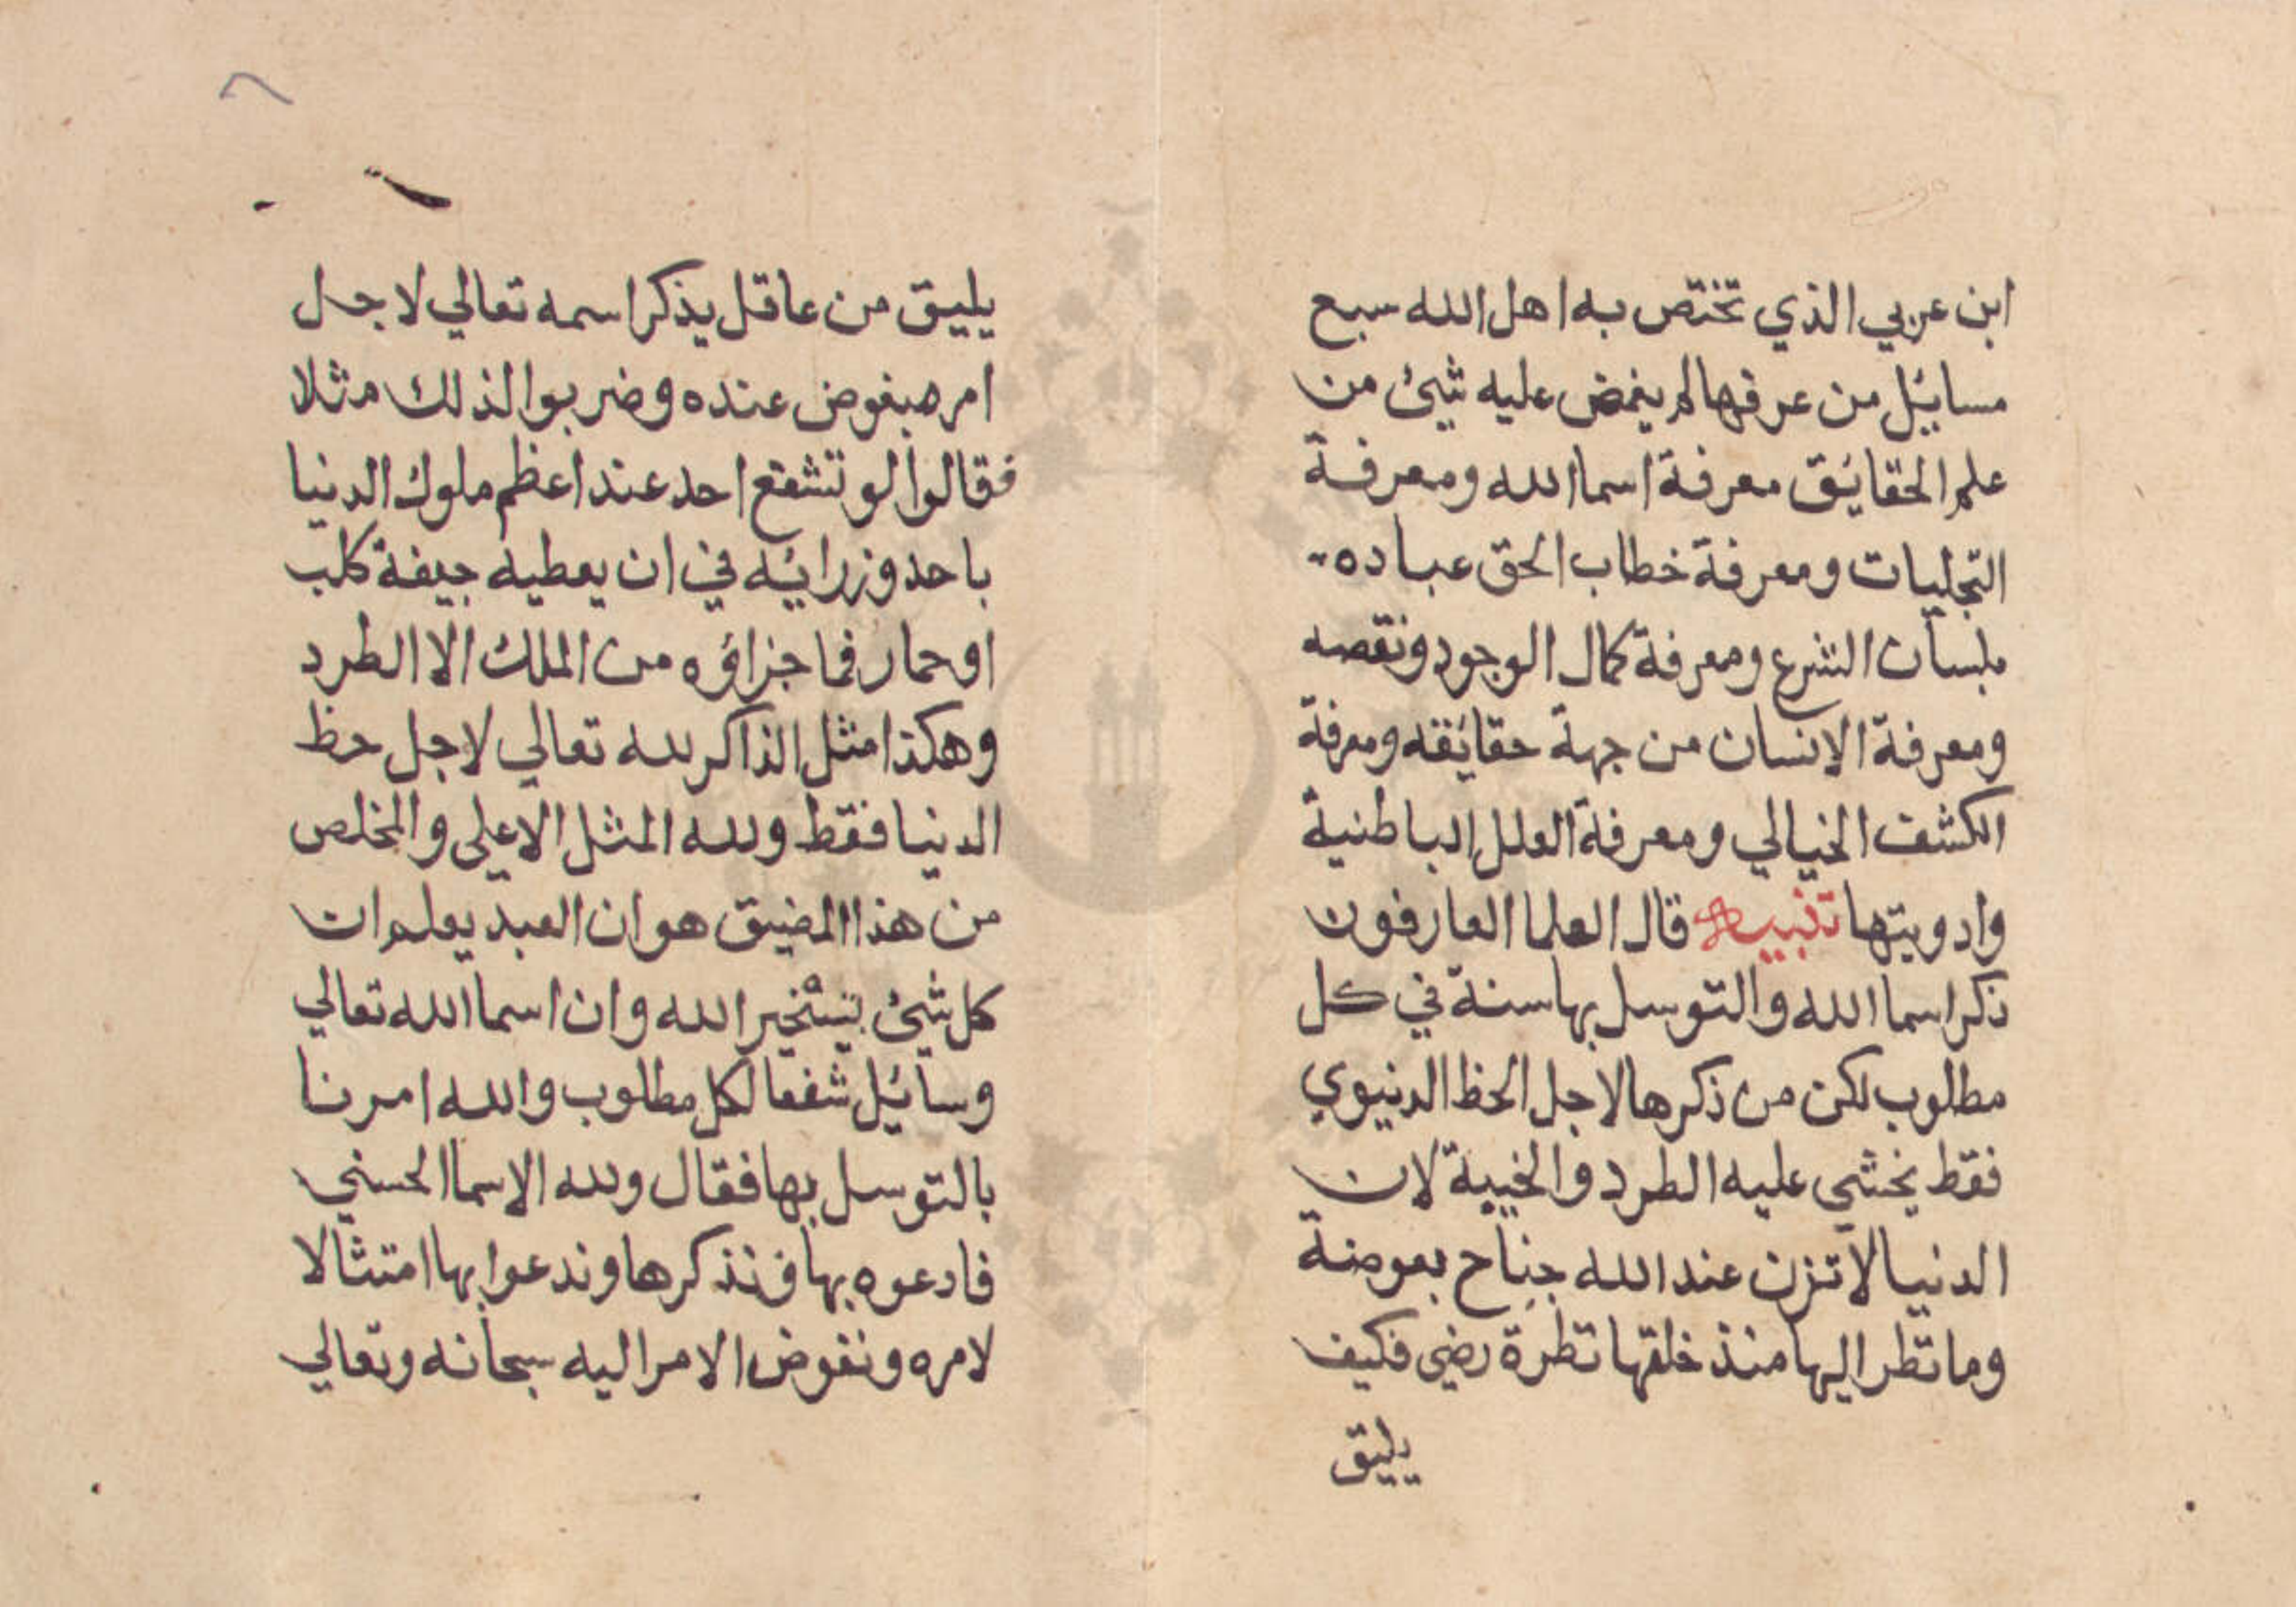 ابن عربي الذي تختص به اهل الله سبع
مسايئل من عرفها لم يغمض عليه شيئ من
علم الحقايئق معرفة اسما الله ومعرفة
التجليات ومعرفة خطاب الحق عباده
بلسان الشرع ومعرفة كمال الوجود ونقصه
ومعرفة الانسان من جهة حقايئقه ومعرفة
الكشف الخيالي ومعرفة العلل الباطنية
وادويتها تنبيه قال العلما العارفون
ذكر اسما الله والتوسل بها سنة في كل
مطلوب لكن من ذكرها لاجل الحظ الدنيوي
فقط يخشي عليه الطرد والخيبة لان
الدنيا لا تزن عند الله جناح بعوضة
وما نظر اليها منذ خلقها نظرة رضي فكيف
يليق
يليق من عاقل يذكر اسمه تعالي لاجل
امر مبغوض عنده وضربوا لذلك مثلا
فقالوا لو تشفع احد عند اعظم ملوك الدنيا
باحد وزرايئه في ان يعطيه جيفة كلب
او حمار فما جزاؤه من الملك الا الطرد
وهكذا مثل الذاكر لله تعالي لاجل حظ
الدنيا فقط ولله المثل الاعلي والمخلص
من هذا المضيق هو ان العبد يعلم ان
كل شيئ بتسخير الله وان اسما الله تعالي
وسايئل شفعا لكل مطلوب والله امرنا
بالتوسل بها فقال ولله الاسما الحسني
فادعوه بها فنذكرها وندعوا بها امتثالا
لامره ونفوض الامر اليه سبحانه وتعالي